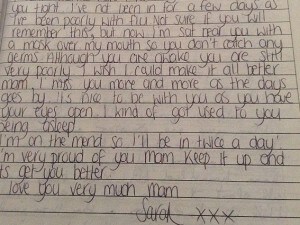 you tight. I've not been in for a few days as
I've been poorly with flu. Not sure if you will
remember this, but now I'm sat near you with
a mask over my mouth so you don't catch any
germs. Although you are awake you are still
very poorly. I wish I could make it all better
mam, I miss you more and more as the days
goes by. It's nice to be with you as you have
your eyes open. I kind of got used to you
being asleep.
I'm on the mend so I'll be in twice a day.
I'm very proud of you mam. Keep it up and
ts get you better
love you very much mam
Sarah xxx